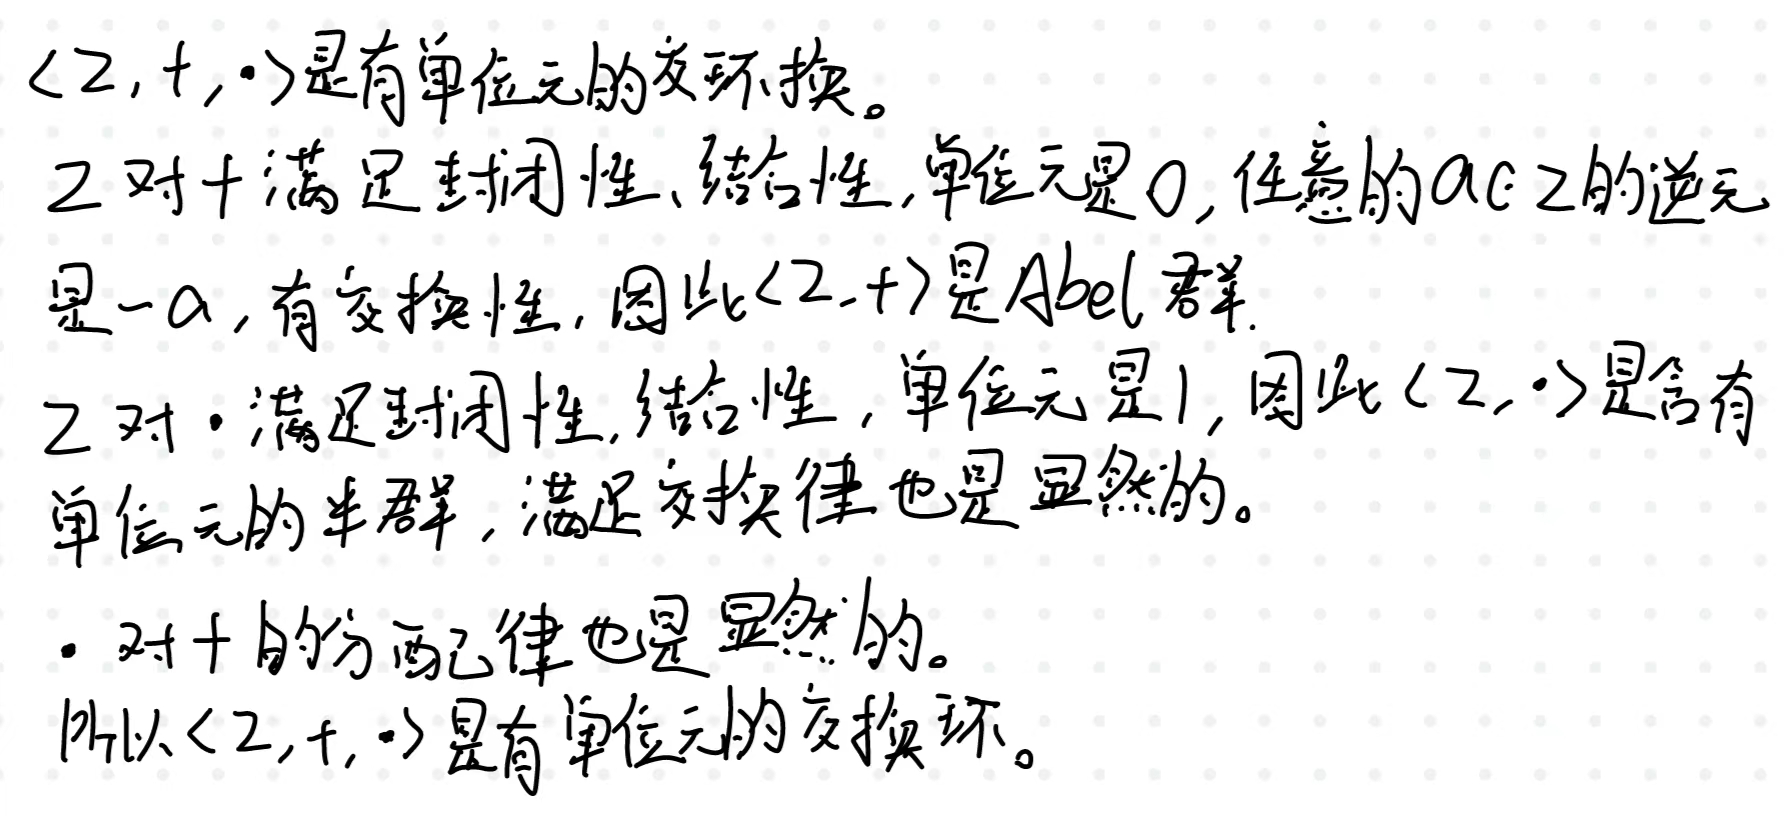 <Z,+,·>是有单位元的交环换。
Z对+满足封闭性、结合性,单位元是0,任意的a∈Z的逆元
是-a,有交换性,因此<Z,+>是Abel群.
Z对·满足封闭性,结合性,单位元是1,因此<Z,·>是含有
单位元的半群,满足交换律也是显然的。
·对+的分配律也是显然的。
所以<Z,+,·>是有单位元的交换环。